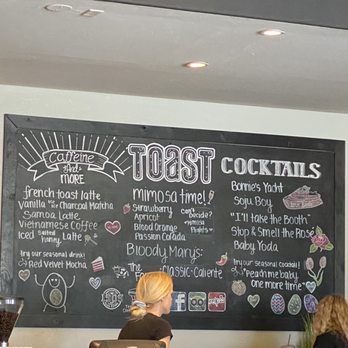 Caffeine
And
MORE
french toast latte
Vanilla Charcoal Matcha
Samoa Latte
Vietnamese Coffee
Iced Salted Honey Latte
try our seasonal drink!
Red Velvet Mocha
TOAST
mimosa time!
Strawberry
Apricot
Blood Orange
Passion
can't Decide?
mimosa flights
Bloody Marys:
Classic·Caliente
COCKTAILS
Bonnie's Yacht
Soju Boy
"I'll take the Booth"
Stop & Smell the Rosé
Baby Yoda
Try our Seasonal Cocktail!
baby,
one more time